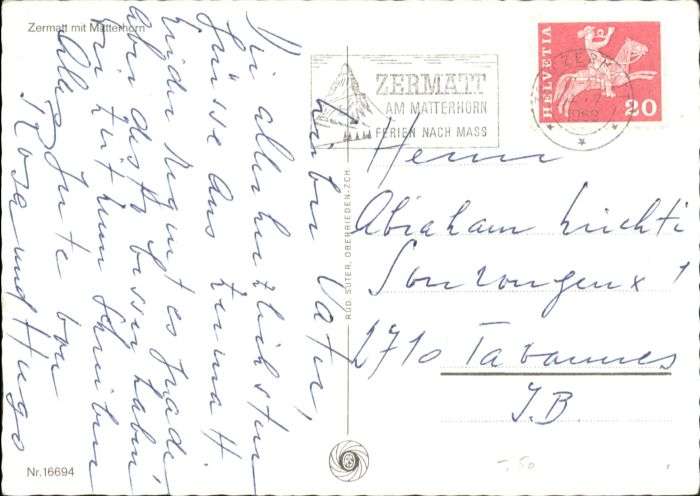 Zermatt mit Matterhorn
Lieber Vater,
Die allerherzlichsten
Grüsse aus Zermatt.
Leider regnet es grade
aber desto besser haben
wir Zeit zum Schreiben
Alles Gute von
Rosa und Hugo
Nr. 16694
RUD. SUTER, OBERRIEDEN-ZCH.
ZERMATT
AM MATTERHORN
FERIEN NACH MASS
HELVETIA
20
Herrn
Abraham Lüchti
Sonvongeux 1
2710 Tavannes
J.B.
-.50